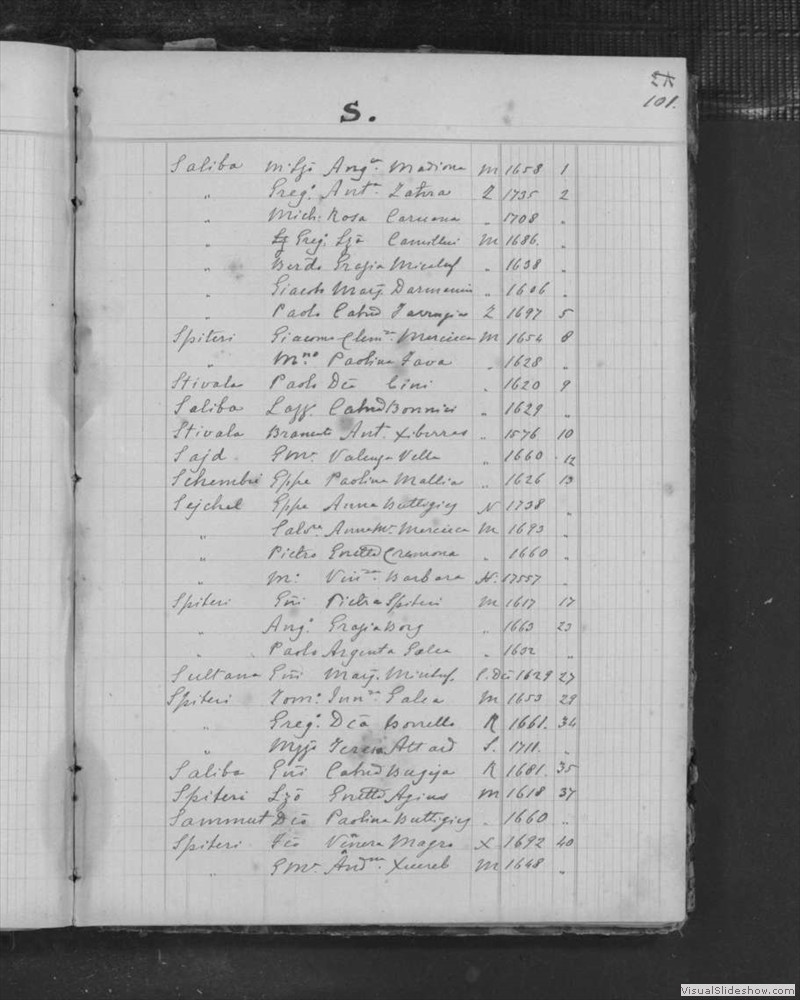 101.
S.
Saliba Ang. Madiona M 1658 1
" Greg. Ant. Zahra Z 1735 2
" Mich. Rosa Caruana " 1708 "
" Greg. Lzō Camilleri M 1686. "
" Berdo Grazia Micalef " 1638 "
" Giacobo Marg. Darmanin " 1606 "
" Paolo Catnd Farrugia Z 1697 5
Spiteri Giacomo Clem. Mercieca M 1654 8
" Paolina Fava " 1628 "
Stivala Paolo Dca Cini " 1620 9
Saliba Catnd Bonnici " 1629 "
Stivala Ant. Xiberras " 1576 10
Sajd Valenza Vella " 1660 12
Schembri Gppe Paolina Mallia " 1626 13
Sejchel Gppe Anna Buttigieg N 1738 "
" Salv. Anna M. Mercieca M 1693 "
" Pietro Gnetta Cremona " 1660 "
" M. Barbara N. 17557 "
Spiteri Gni Pietra Spiteri M 1617 17
" Ang. Grazia Borg " 1663 23
" Paolo Argenta Galea " 1632 "
Sultana Gni Marg. Micalef 1629 27
Spiteri Tom. Galea M 1653 29
" Greg. Dca Borrello R 1661. 34
" Attard S. 1711. "
Saliba Gni Catnd Bugeja R 1681. 35
Spiteri Lzō Gnetta Agius M 1618 37
Sammut Dco Paolina Buttigieg " 1660 "
Spiteri Fco Vnera Magro X 1692 40
" And. Xuereb M 1648 "
VisualSlideshow.com